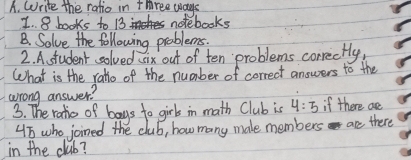 A. Write the ratio in three ways
1. 8 books to 13 notebooks
B. Solve the following problems.
2. A student solved six out of ten problems correctly,
What is the ratio of the number of correct answers to the
wrong answer?
3. The ratio of boys to girls in math Club is 4:5 if there are
45 who joined the club, how many male members are there
in the club?